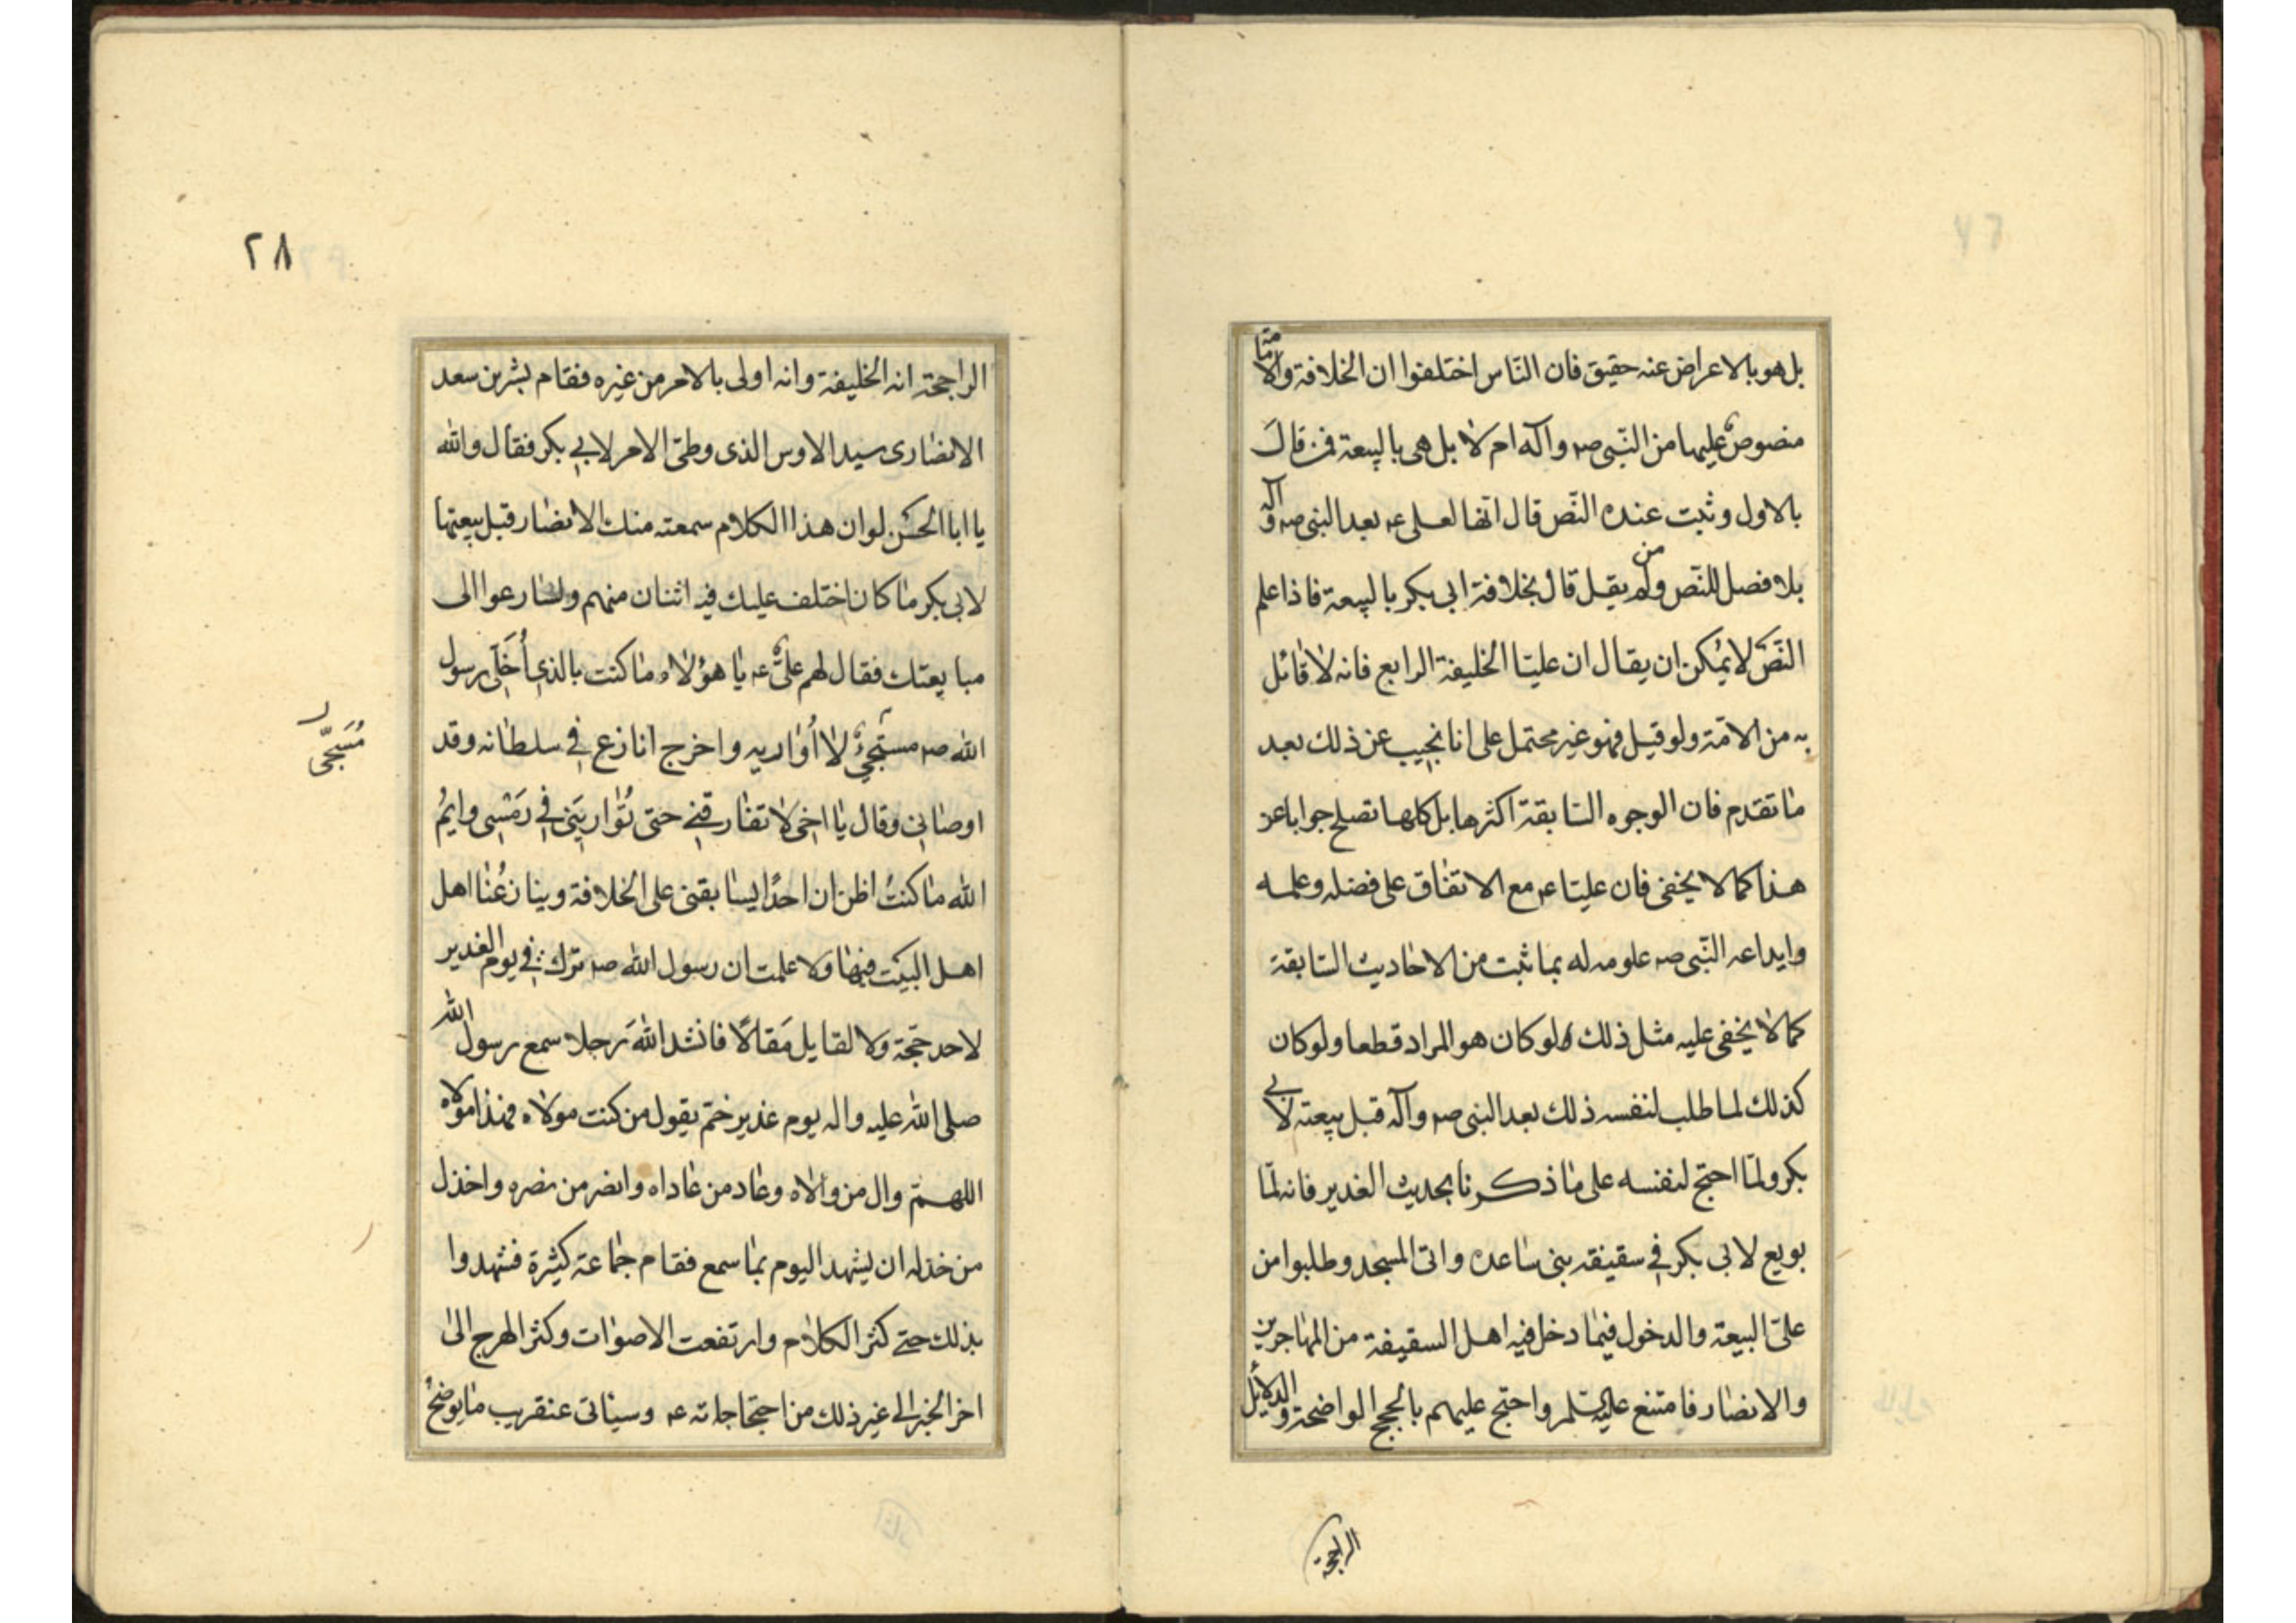 بل هو بالاعراض عنه حقيق فان النّاس اختلفوا ان الخلافة والامامة
منصوصٌ عليها من النّبي صه وآله ام لا بل هي بالبيعة فمن قال
بالاول وثبت عنده النّص قال انّها لعلي عه بعد النبي صه وآله
بلا فصل للنّص ومن لم يقل قال بخلافة ابي بكر بالبيعة فاذا علم
النّصّ لا يمُكن ان يقال ان عليّا الخليفة الرابع فانه لا قائل
به من الامّة ولو قيل فهو غير محتمل على انا نجيب عن ذلك بعد
ما تقدم فان الوجوه السّابقة اكثرها بل كلها تصلح جوابا عن
هذا كما لا يخفى فان عليّا عه مع الاتفاق على فضله وعلمه
وايداعه النّبي صه علومه له بما ثبت من الاحاديث السّابقة
كما لا يخفى عليه مثل ذلك لو كان هو المراد قطعا ولو كان
كذلك لما طلب لنفسه ذلك بعد النبي صه وآله قبل بيعته لابي
بكر ولمّا احتج لنفسه على ما ذكرنا بحديث الغدير فانه لمّا
بويع لابي بكر في سقيفة بني ساعدة واتى المسجد وطلبوا من
عليّ البيعة والدخول فيما دخل فيه اهل السقيفة من المهاجرين
والانصار فامتنع عليه السّلم واحتج عليهم بالحجج الواضحة والدلائل
الراجحة
٢٨
الراجحة انه الخليفة وانه اولى بالامر من غيره فقام بشر بن سعد
الانصارى سيد الاوس الذى وطئ الامر لابي بكر فقال والله
يا ابا الحسن لو ان هذا الكلام سمعته منك الانصار قبل بيعتها
لابى بكر ما كان اختلف عليك فيه اثنان منهم ولسارعوا الى
مبايعتك فقال لهم عليٌّ عه يا هؤلاء ما كنت بالذي أُخَلّي رسول
الله صه مستجيٌ لا أُواريه واخرج انازع في سلطانه وقد
مُسَجّى
اوصانى وقال يا اخى لا تفارقني حتى تُواريَني في رَمْسِي وايمُ
الله ما كنتُ اظن ان احدًا يسابقني على الخلافة وينازعُنا اهل
اهل البيت فيها ولا علمت ان رسول الله صه ترك في يوم الغدير
لاحد حجّة ولا لقايل مَقالًا فانشد اللهَ رجلا سمع رسول الله
صلى الله عليه واله يوم غدير خمّ يقول من كنت مولاه فهذا مولاه
اللهمّ وال من والاه وعاد من عاداه وانصر من نصره واخذل
من خذله ان يشهد اليوم بما سمع فقام جماعة كثيرة فشهدوا
بذلك حتى كثر الكلام وارتفعت الاصوات وكثر الهرج الى
اخر الخبر الى غير ذلك من احتجاجاته عه وسيأتى عنقريب ما يوضحُ